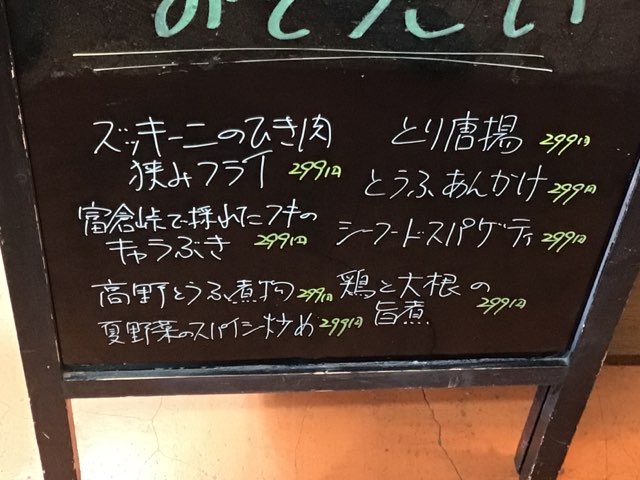 ズッキーニのひき肉
狭みフライ 299円
富倉峠で採れたフキの
キャラぶき 299円
高野とうふ煮物 299円
夏野菜のスパイシー炒め 299円
とり唐揚 299円
とうふあんかけ 299円
シーフードスパゲティ 299円
鶏と大根の
旨煮 299円